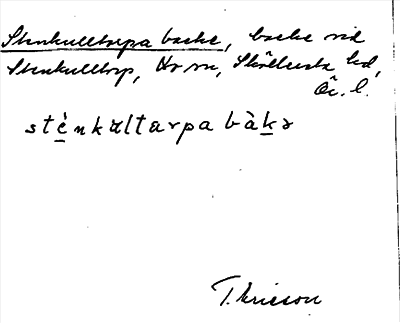 Stenkulltorpa backe, backe vid
Stenkulltorp, sn, Skölersta hd,
Ör. l.
stènkúltarpa bàkə
T. Ericson